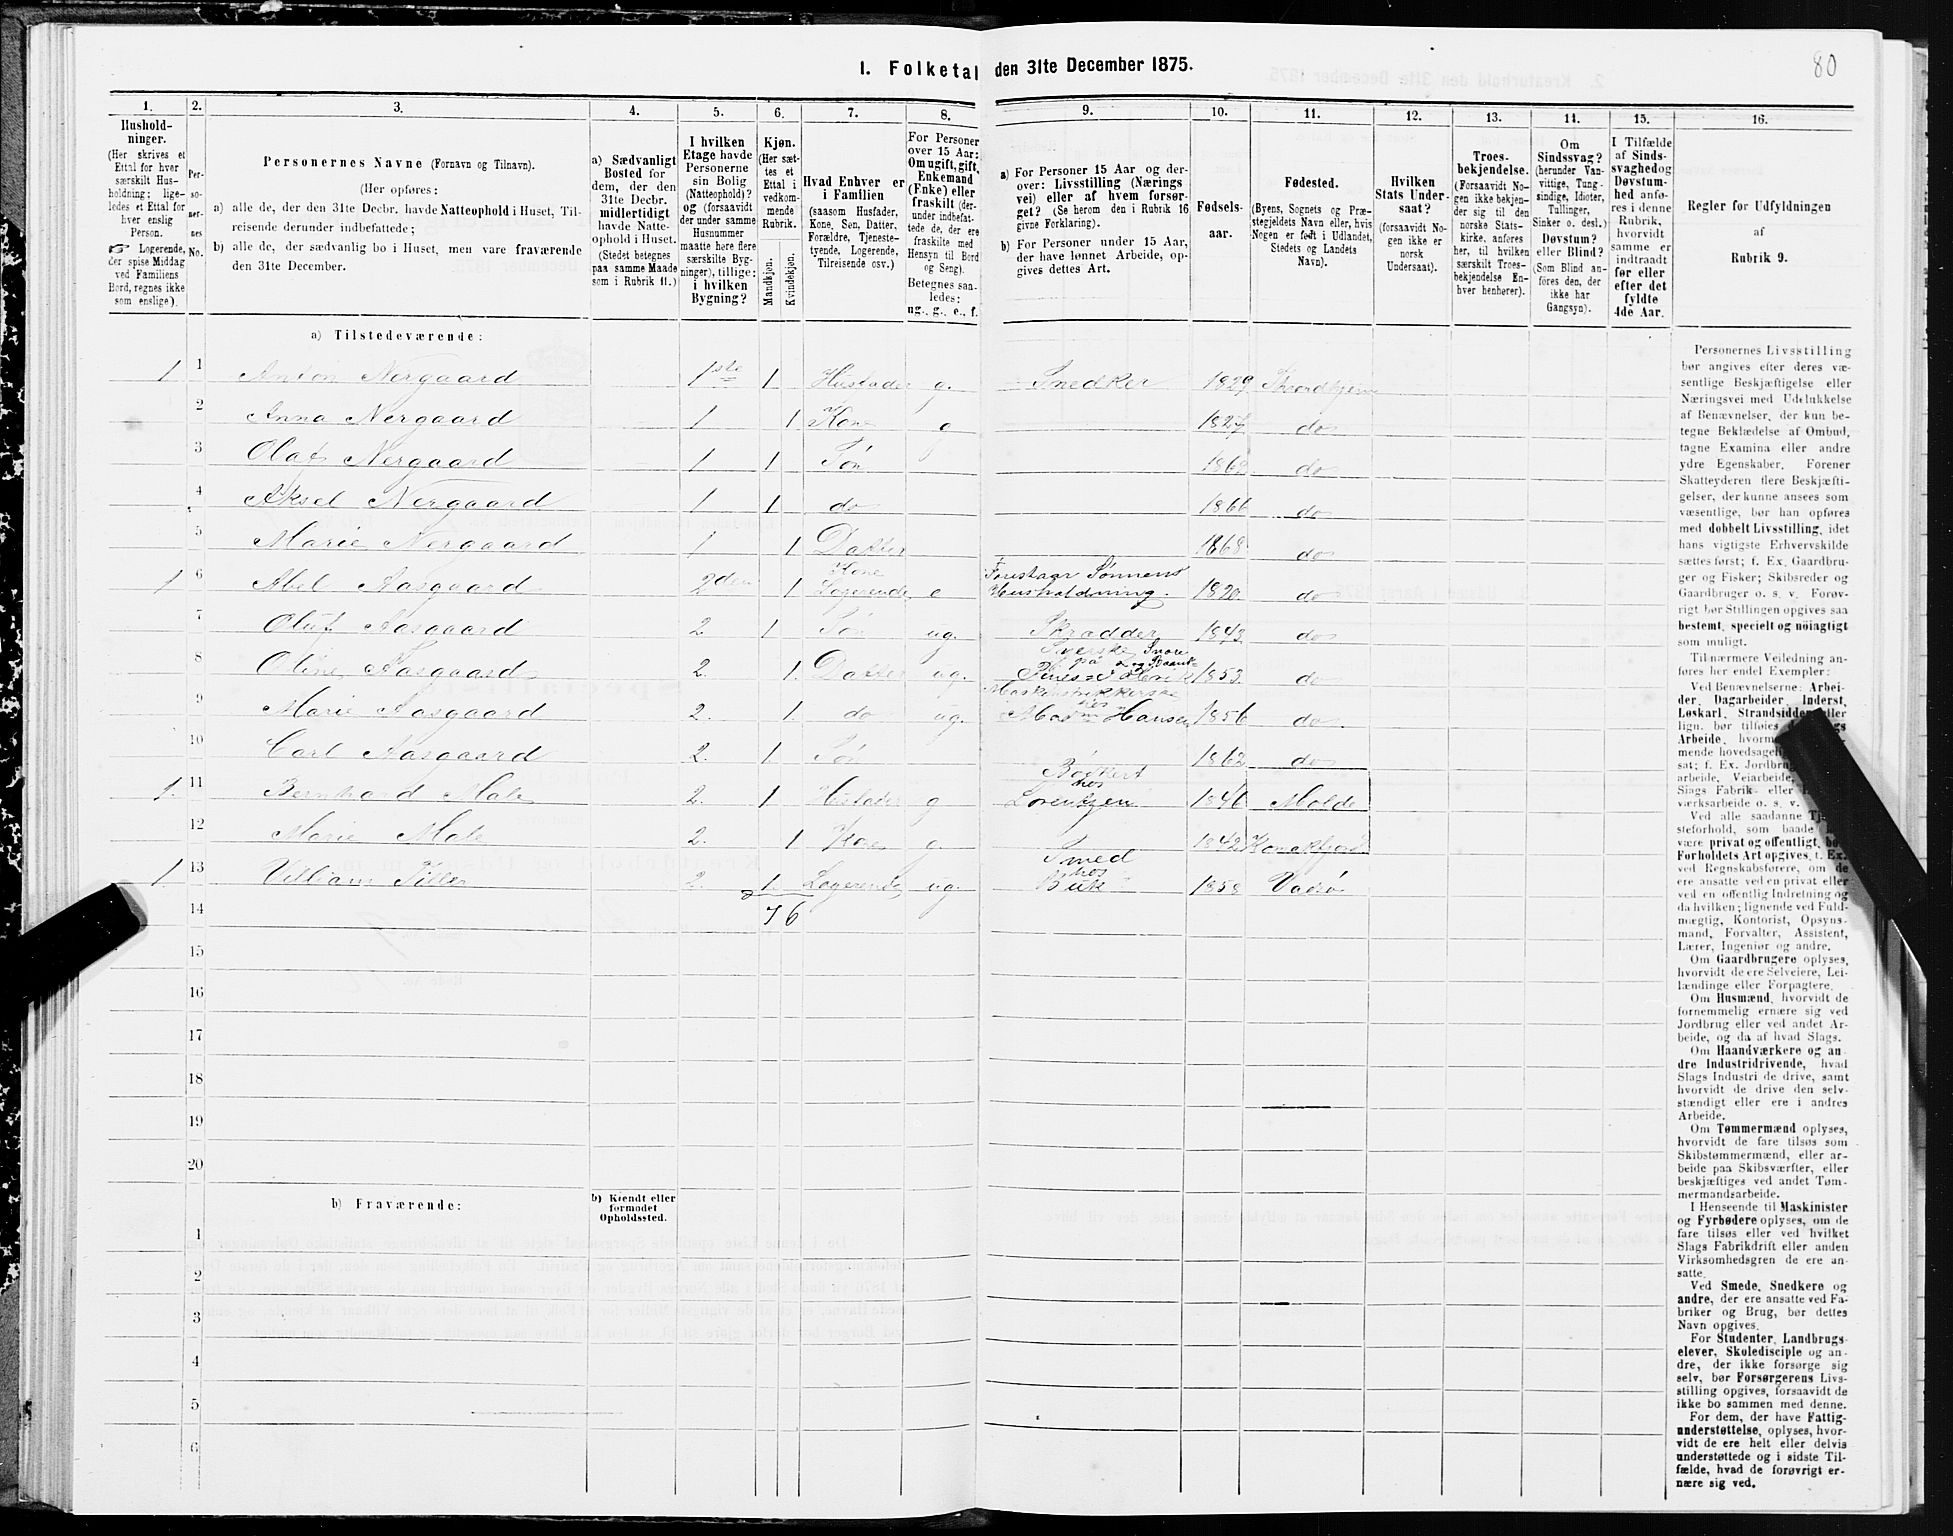 80
1. Folketal den 31te December 1875.
1. 2. 3. 4. 5. 6. 7. 8. 9. 10. 11. 12. 13. 14. 15. 16.
Hushold-
ninger.
(Her skrives et
Ettal for hver
særskilt Hus-
holdning; lige-
ledes et Ettal for
hver enslig
Person.
☞ Logerende,
der spise Middag
ved Familiens
Bord, regnes ikke
som enslige).
Per-
so-
ner-
nes
No.
Personernes Navne (Fornavn og Tilnavn).
(Her opføres:
a) alle de, der den 31te Decbr. havde Natteophold i Huset, Til-
reisende derunder indbefattede;
b) alle de, der sædvanlig bo i Huset, men vare fraværende
den 31te December.
a) Sædvanligt
Bosted for
dem, der den
31te Decbr.
midlertidigt
havde Natte-
ophold i Huset.
(Stedet betegnes
paa samme Maade
som i Rubrik 11.)
I hvilken
Etage havde
Personerne
sin Bolig
(Natteophold)?
og (forsaavidt
der under samme
Husnummer
maatte høre flere
særskilte Byg-
ninger), tillige:
i hvilken
Bygning?
Kjøn.
(Her sæt-
tes et
Ettal i
vedkom-
mende
Rubrik.
Mandkjøn.
Kvindekjøn.
Hvad Enhver er
i Familien
(saasom Husfader,
Kone, Søn, Datter,
Forældre, Tjeneste-
tyende, Logerende,
Tilreisende osv.)
For Personer
over 15 Aar:
Om ugift, gift,
Enkemand
(Enke) eller
fraskilt (der-
under indbefat-
tede de, der ere
fraskilte med
Hensyn til Bord
og Seng).
Betegnes saa-
ledes:
ug., g., e., f.
a) For Personer 15 Aar og der-
over: Livsstilling (Nærings
vei) eller af hvem forsør-
get? (Se herom den i Rubrik 16
givne Forklaring).
b) For Personer under 15 Aar,
der have lønnet Arbeide, op-
gives dettes Art.
Fødsels-
aar.
Fødested.
(Byens, Sognets og Præ-
stegjeldets Navn eller, hvis
Nogen er født i Udlandet,
Stedets og Landets
Navn).
Hvilken
Stats Under-
saat?
(forsaavidt No-
gen ikke er
norsk
Undersaat).
Troes-
bekjendelse.
(Forsaavidt No-
gen ikke bekjen-
der sig til den
norske Stats-
kirke, anføres
her, til hvilken
særskilt Troes-
bekjendelse En-
hver henhører).
Om
Sindssvag?
(herunder Van-
vittige, Tung-
sindige, Idioter,
Tullinger,
Sinker o. desl.)
Døvstum?
eller Blind?
(Som Blind an-
føres den, der
ikke har
Gangsyn).
I Tilfælde
af Sinds-
svaghed og
Døvstum-
hed anfø-
res i denne
Rubrik,
hvorvidt
samme er
indtraadt
før eller
efter det
fyldte
4de Aar.
Regler for Udfyldningen
af
Rubrik 9.
a) Tilstedeværende:
1 1 Anton Nergaard 1ste 1 Husfader g. Snedker 1829 Throndhjem
2 Anna Nergaard 1 1 Kone g 1827 do
3 Olaf Nergaard 1 1 Søn do
4 Aksel Nergaard 1 1 do 1866 do
5 Marie Nergaard 1 1 Datter 1868 do
1 6 Abel Aasgaard 2den 1 Kone Logerende e Forestaar Sønnens Husholdning. 1820 do
7 Oluf Aasgaard 2 1 Søn ug. Skrædder 1843 do
8 Oline Aasgaard 2. 1. Datter ug. 1853 do
9 Marie Aasgaard 2. 1. do ug. Maskinstrikkerske hos Hansen 1856 do
10 Carl Aasgaard 2. 1 Søn 1862 do
1. 11 Bernhard Male 2. 1 Husfader g hos Lorentzen 1846 Molde
12 Marie Male 2. 1 Kone g. 1842
1. 13 Villiam Tiller 2. 1. Logerende ug. Smed hos 1858 Vadsø
14 7 6
15
16
17
18
19
20
b) Fraværende:
b) Kjendt eller
formodet
Opholdssted.
1
2
3
4
5
6
Personernes Livsstilling
bør angives efter deres væ-
sentlige Beskjæftigelse eller
Næringsvei med Udelukkelse
af Benævnelser, der kun be-
tegne Beklædelse af Ombud,
tagne Examina eller andre
ydre Egenskaber. Forener
Skatteyderen flere Beskjæfti-
gelser, der kunne ansees som
væsentlige, bør han opføres
med dobbelt Livsstilling, idet
hans vigtigste Erhvervskilde
sættes først; f. Ex. Gaardbru-
ger og Fisker; Skibsreder og
Gaardbruger o. s. v. Forøv-
rigt bør Stillingen opgives saa
bestemt, specielt og nøiagtigt
som muligt.
Til nærmere Veiledning an-
føres her endel Exempler:
Ved Benævnelserne: Arbei-
der, Dagarbeider, Inderst,
Løskarl, Strandsidder eller
lign. bør tilføies
Arbeide, hvorm
mende hovedsage
sat; f. Ex. Jordbru
arbeide, Veiarbeide,
Slags Fabrik- eller
værksarbeide o. s. v.
Ved alle saadanne
steforhold, som baade
være privat og offentligt, bør
Forholdets Art opgives, f. Ex.
ved Regnskabsførere, om de
ere ansatte ved en privat eller
ved en offentlig Indretning og
da hvilken; lignende ved Fuld-
mægtig, Kontorist, Opsyns-
mand, Forvalter, Assistent,
Lærer, Ingeniør og andre.
Om Gaardbrugere oplyses,
hvorvidt de ere Selveiere, Lei-
lændinge eller Forpagtere.
Om Husmænd, hvorvidt de
fornemmelig ernære sig ved
Jordbrug eller ved andet Ar-
beide, og da af hvad Slags.
Om Haandværkere og an-
dre Industridrivende, hvad
Slags Industri de drive, samt
hvorvidt de drive den selv-
stændigt eller ere i andres
Arbeide.
Om Tømmermænd oplyses,
hvorvidt de fare tilsøs som
Skibstømmermænd, eller ar-
beide paa Skibsværfter, eller
beskjæftiges ved andet Tøm-
mermandsarbeide.
I Henseende til Maskinister
og Fyrbødere oplyses, om de
fare tilsøs eller ved hvilket
Slags Fabrikdrift eller anden
Virksomhedsgren de ere an-
satte.
Ved Smede, Snedkere og
andre, der ere ansatte ved Fa-
briker og Brug, bør dettes
Navn opgives.
For Studenter, Landbrugs-
elever, Skoledisciple og an-
dre, der ikke forsørge sig
selv, bør Forsørgerens Livs-
stilling opgives, forsaavidt de
ikke bo sammen med denne.
For dem, der have Fattig-
understøttelse, oplyses, hvor-
vidt de ere helt eller delvis
understøttede og i sidste Til-
fælde, hvad de forøvrigt er-
nære sig ved.